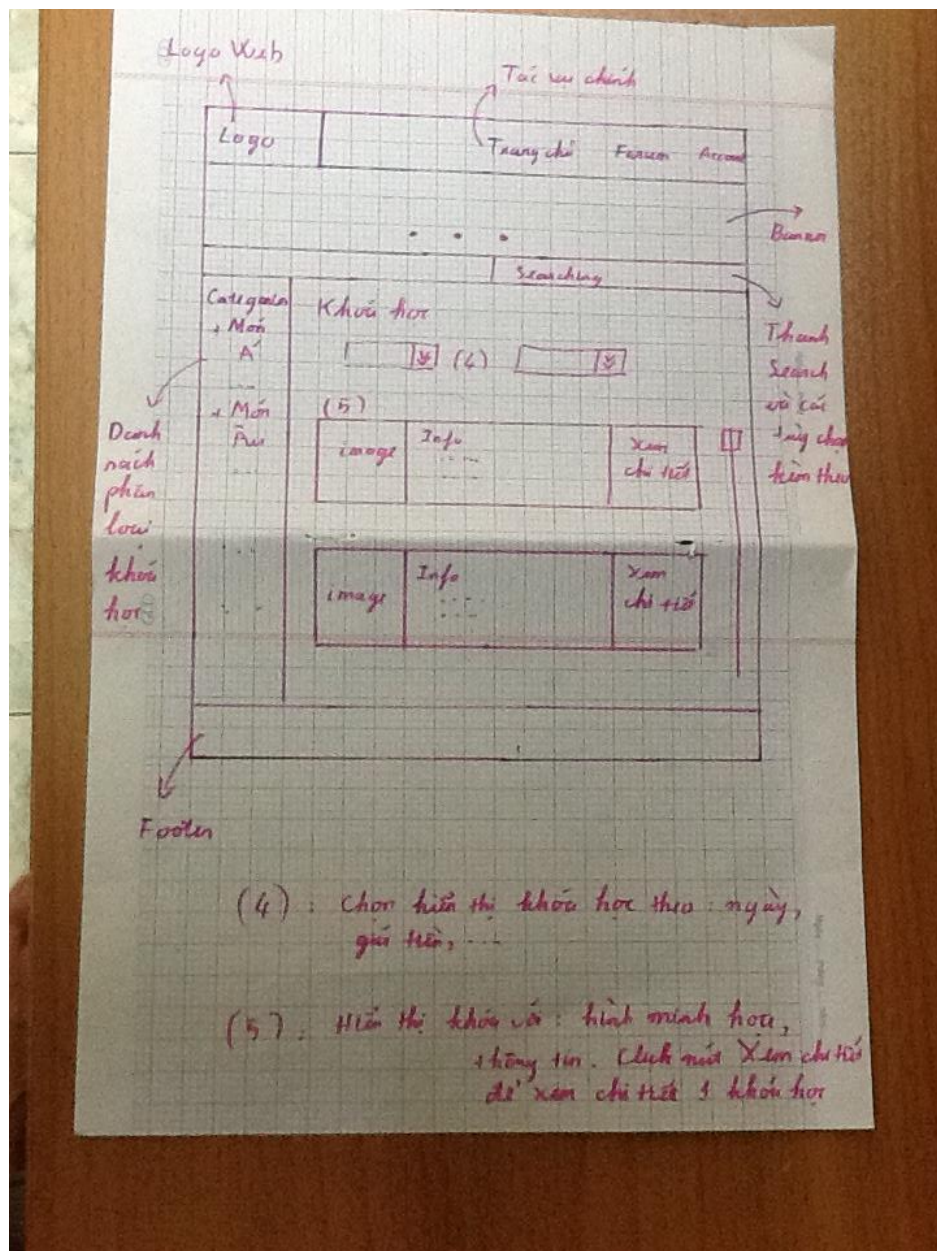 Logo Web
Tác vụ chính
Logo
Trang chủ Forum Account
Banner
Searching
Categories
Khoá học
+ Món
Á
...
(4)
Thanh
Search
và các
tùy chọn
kèm theo
+ Món
Âu
...
(5)
Danh
sách
phân
loại
khoá
học
image
Info
...
Xem
chi tiết
image
Info
...
Xem
chi tiết
Footer
(4) : Chọn hiển thị khóa học theo : ngày,
giá tiền, ...
(5) : Hiển thị khóa với : hình minh hoạ,
thông tin. Click nút Xem chi tiết
để xem chi tiết 1 khóa học